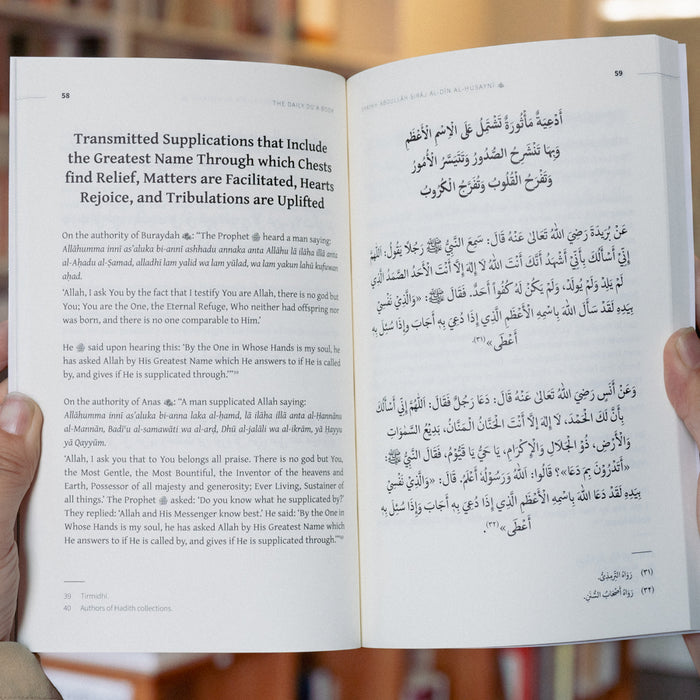 58
THE DAILY DU'A BOOK
Transmitted Supplications that Include
the Greatest Name Through which Chests
find Relief, Matters are Facilitated, Hearts
Rejoice, and Tribulations are Uplifted
On the authority of Buraydah: “The Prophet ﷺ heard a man saying:
Allāhumma innī as’aluka bi-annī ashhadu annaka anta Allāhu lā ilāha illā anta
al-Aḥadu al-Ṣamad, alladhī lam yalid wa lam yūlad, wa lam yakun lahū kufuwan
aḥad.
‘Allah, I ask You by the fact that I testify You are Allah, there is no god but
You; You are the One, the Eternal Refuge, Who neither had offspring nor
was born, and there is no one comparable to Him.’
He ﷺ said upon hearing this: ‘By the One in Whose Hands is my soul, he
has asked Allah by His Greatest Name which He answers to if He is called
by, and gives if He is supplicated through.’”³⁹
On the authority of Anas: “A man supplicated Allah saying:
Allāhumma innī as’aluka bi-anna laka al-ḥamd, lā ilāha illā anta al-Ḥannānu
al-Mannān, Badī‘u al-samawāti wa al-arḍ, Dhū al-jalāli wa al-ikrām, yā Ḥayyu
yā Qayyūm.
‘Allah, I ask you that to You belongs all praise. There is no god but You,
the Most Gentle, the Most Bountiful, the Inventor of the heavens and
Earth, Possessor of all majesty and generosity; Ever Living, Sustainer of
all things.’ The Prophet ﷺ asked: ‘Do you know what he supplicated by?’
They replied: ‘Allah and His Messenger know best.’ He said: ‘By the One in
Whose Hands is my soul, he has asked Allah by His Greatest Name which
He answers to if He is called by, and gives if He is supplicated through.’”⁴⁰
39 Tirmidhī.
40 Authors of Hadith collections.
59
SHAYKH ʿABDULLĀH SIRĀJ AL-DĪN AL-ḤUSAYNĪ
أَدْعِيَةٌ مَأْثُورَةٌ تَشْتَمِلُ عَلَى الِاسْمِ الْأَعْظَمِ
وَبِهَا تَنْشَرِحُ الصُّدُورُ وَتَتَيَسَّرُ الْأُمُورُ
وَتَفْرَحُ الْقُلُوبُ وَتُفْرَجُ الْكُرُوبُ
عَنْ بُرَيْدَةَ رَضِيَ اللهُ تَعَالَى عَنْهُ قَالَ: سَمِعَ النَّبِيُّ ﷺ رَجُلًا يَقُولُ: اَللّٰهُمَّ
إِنِّي أَسْأَلُكَ بِأَنِّي أَشْهَدُ أَنَّكَ أَنْتَ اللهُ لَا إِلٰهَ إِلَّا أَنْتَ الْأَحَدُ الصَّمَدُ الَّذِي
لَمْ يَلِدْ وَلَمْ يُولَدْ، وَلَمْ يَكُنْ لَهُ كُفُوًا أَحَدٌ. فَقَالَ ﷺ: «وَالَّذِي نَفْسِي
بِيَدِهِ لَقَدْ سَأَلَ اللهَ بِاسْمِهِ الْأَعْظَمِ الَّذِي إِذَا دُعِيَ بِهِ أَجَابَ وَإِذَا سُئِلَ بِهِ
أَعْطَى»(٣١).
وَعَنْ أَنَسٍ رَضِيَ اللهُ تَعَالَى عَنْهُ قَالَ: دَعَا رَجُلٌ فَقَالَ: اَللّٰهُمَّ إِنِّي أَسْأَلُكَ
بِأَنَّ لَكَ الْحَمْدَ، لَا إِلٰهَ إِلَّا أَنْتَ الْحَنَّانُ الْمَنَّانُ، بَدِيْعُ السَّمٰوَاتِ
وَالْأَرْضِ، ذُوْ الْجَلَالِ وَالْإِكْرَامِ، يَا حَيُّ يَا قَيُّوْمُ، فَقَالَ النَّبِيُّ ﷺ:
«أَتَدْرُوْنَ بِمَ دَعَا»؟ قَالُوا: اللهُ وَرَسُوْلُهُ أَعْلَمُ. قَالَ: «وَالَّذِيْ نَفْسِيْ
بِيَدِهِ لَقَدْ دَعَا اللهَ بِاسْمِهِ الْأَعْظَمِ الَّذِي إِذَا دُعِيَ بِهِ أَجَابَ وَإِذَا سُئِلَ بِهِ
أَعْطَى»(٣٢).
(٣١) رَوَاهُ التِّرْمِذِيُّ.
(٣٢) رَوَاهُ أَصْحَابُ السُّنَنِ.